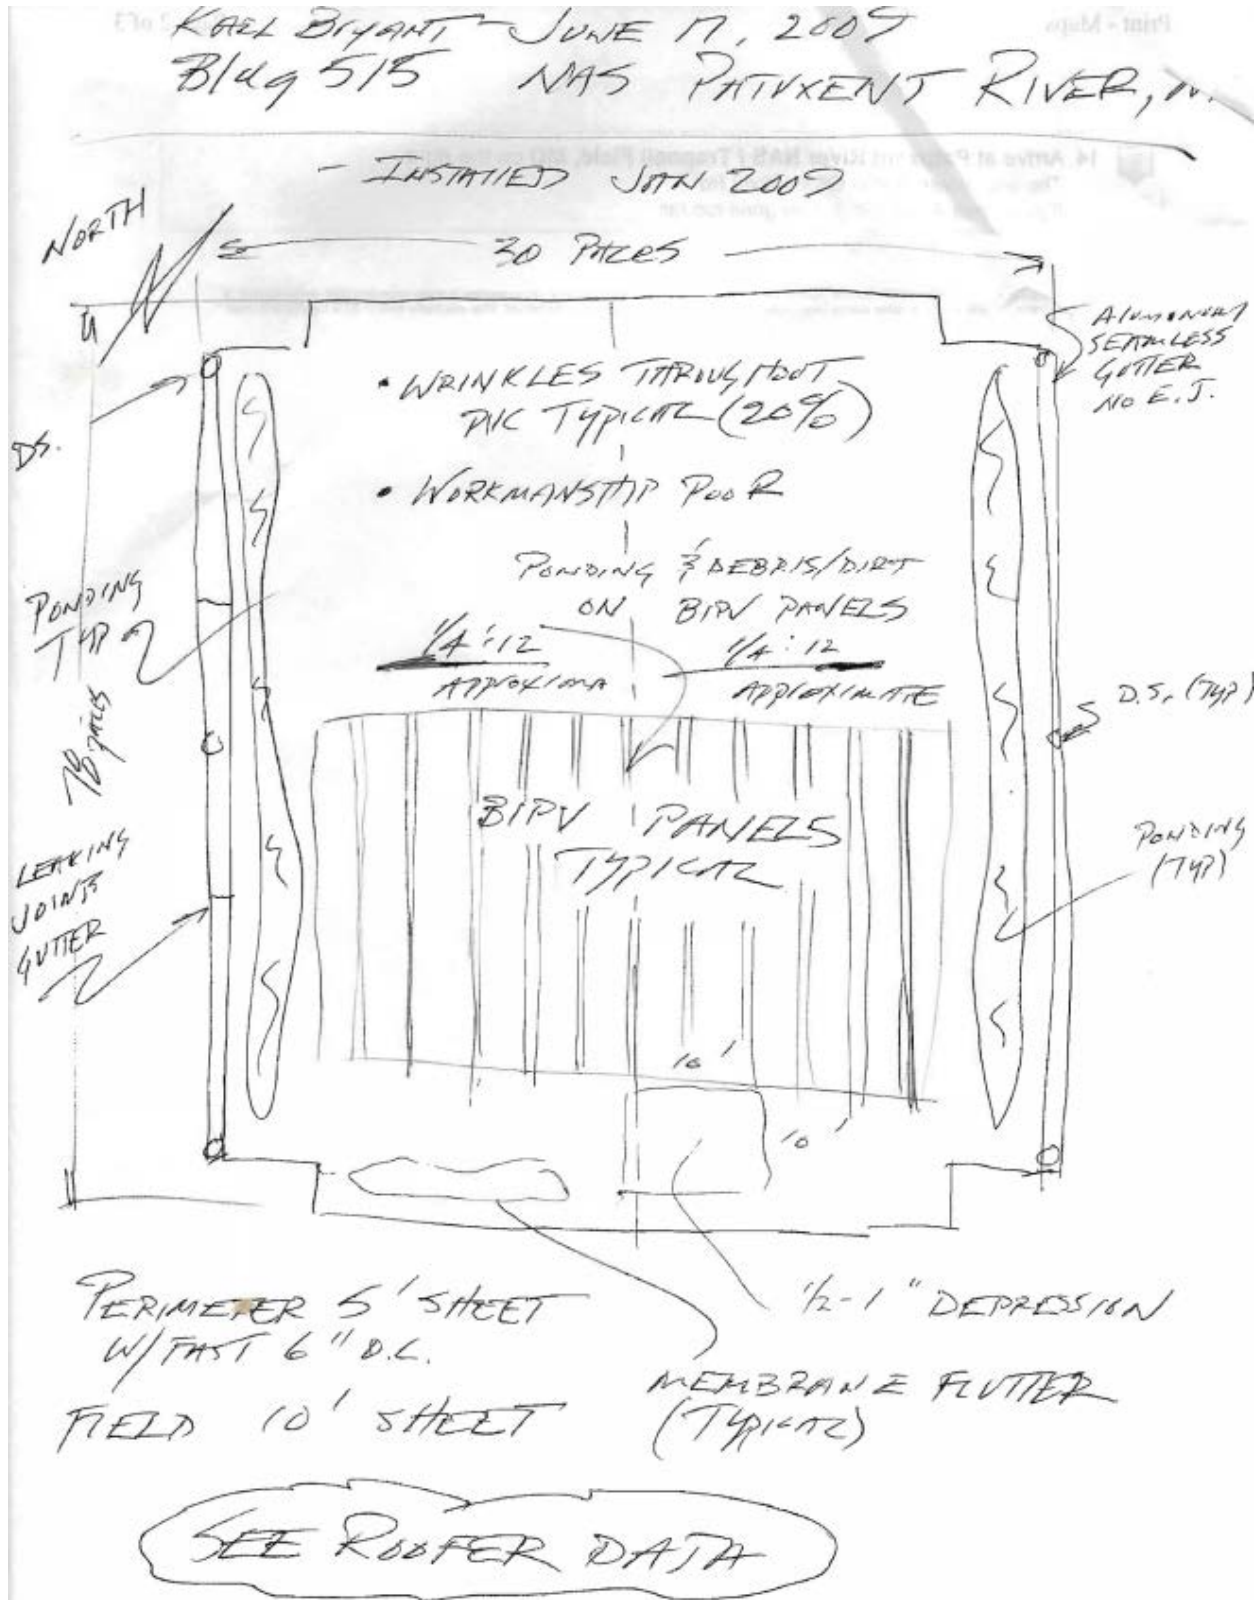 KAEL BRYANT - JUNE 17, 2009
Bldg 515 NAS PATUXENT RIVER,
- INSTALLED JAN 2009
NORTH
30 PACES
ALUMINUM
SEAMLESS
GUTTER
NO E.J.
DS.
• WRINKLES THROUGHOUT
PVC TYPICAL (20%)
• WORKMANSHIP POOR
PONDING & DEBRIS/DIRT
ON BIPV PANELS
1/4":12
APPROXIMA
1/4:12
APPROXIMATE
PONDING
TYP
78 PACES
D.S. (TYP)
BIPV PANELS
TYPICAL
PONDING
(TYP)
LEAKING
JOINTS
GUTTER
10'
10'
PERIMETER 5' SHEET
W/ FAST 6" O.C.
FIELD 10' SHEET
1/2-1" DEPRESSION
MEMBRANE FLUTTER
(TYPICAL)
SEE ROOFER DATA